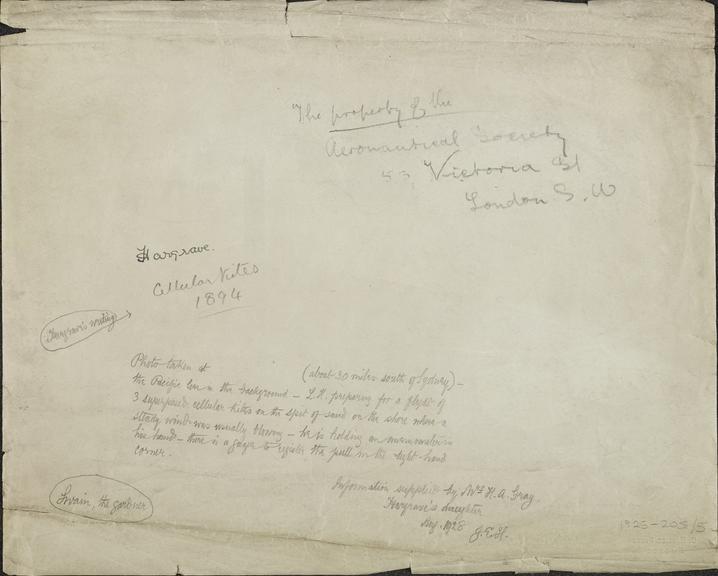 The property of the
Aeronautical Society
53, Victoria St
London S.W
Hargrave.
Cellular Kites
1894
Hargrave's writing
Photo taken at (about 30 miles south of Sydney) –
the Pacific Ocn in the background – L.H. preparing for a flight of
3 superposed cellular kites on the spit of sand on the shore where a
steady wind was usually blowing – he is holding an anemometer in
his hand – there is a gauge to register the pull in the right hand
corner.
Swain, the gardener
Information supplied by Mrs H. A. Gray.
Hargrave's daughter
1928
1925-205/5